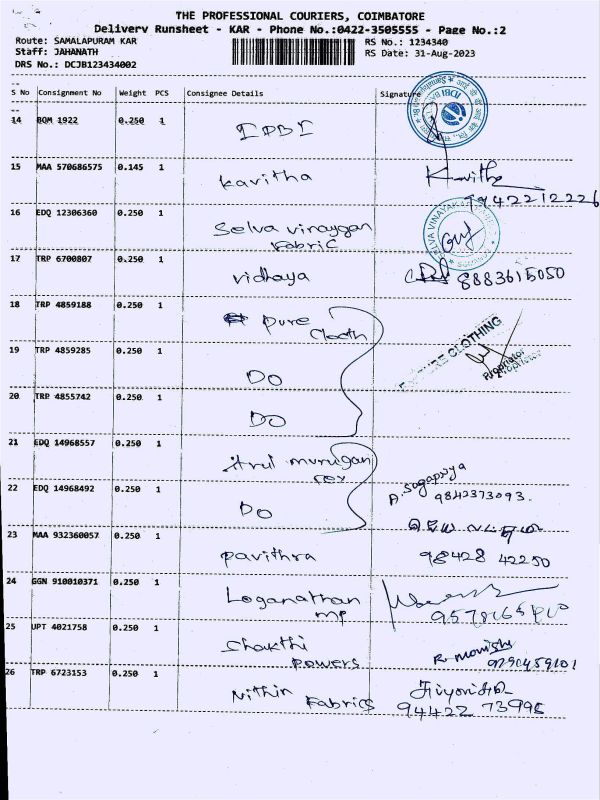 THE PROFESSIONAL COURIERS, COIMBATORE
Delivery Runsheet - KAR - Phone No.:0422-3505555 - Page No.:2
Route: SAMALAPURAM KAR RS No.: 1234340
Staff: JAHANATH RS Date: 31-Aug-2023
DRS No.: DCJB123434002
S No Consignment No Weight PCS Consignee Details Signature
14 BOM 1922 0.250 1 IDBI
15 MAA 570686575 0.145 1 Kavitha Kavitha
9942212226
16 EDQ 12306360 0.250 1 Selva vinaygan
Fabric
17 TRP 6700807 0.250 1 vidhaya 8883615050
18 TRP 4859188 0.250 1 pure
Cloth
PURE CLOTHING
Proprietor
19 TRP 4859285 0.250 1 DO
20 TRP 4855742 0.250 1 DO
21 EDQ 14968557 0.250 1 murugan
22 EDQ 14968492 0.250 1 DO
9842373093.
23 MAA 932360057 0.250 1 pavithra 98428 42250
24 GGN 910010371 0.250 1 Loganathan
mp
25 UPT 4021758 0.250 1 Shakthi
powers
26 TRP 6723153 0.250 1 Nithin Fabrics
94422 73995